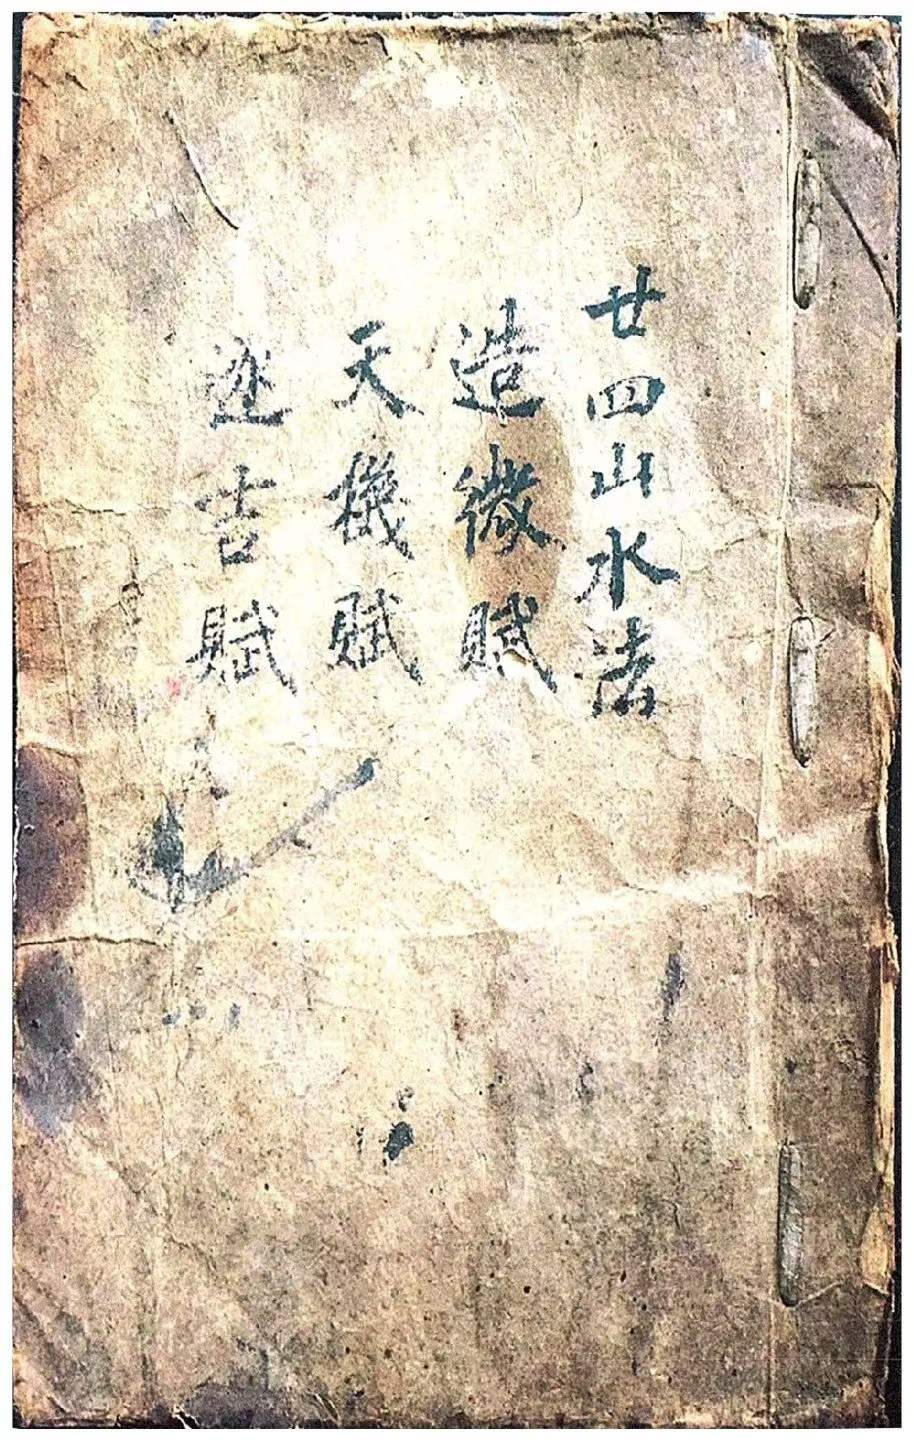 廿四山水法
造微賦
天機賦
逐吉賦